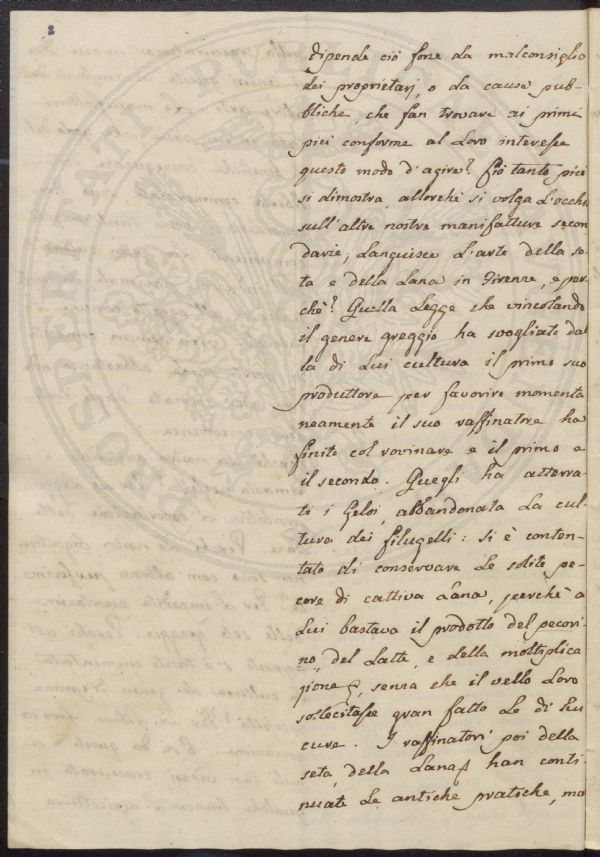 dipende ciò forse da malconsiglio
dei proprietarj, o da cause pub-
bliche, che fan trovare ai primi
più conforme al Loro interesse
questo modo d'agire? Ciò tanto più
si dimostra allorchè si volga L'occhio
sull'altre nostre manifatture secon
darie; Languisce L'arte della se-
ta e della Lana in Firenze, e per
chè? Quella Legge che vincolando
il genere greggio ha svogliato dal
la di Lui cultura il primo suo
produttore per favorire momenta
neamente il suo raffinatore ha
finito col rovinare e il primo e
il secondo. Quegli ha atterra-
ti i Gelsi, abbandonata La cul-
tura dei filugelli: si è conten-
tato di conservare Le solite pe-
core di cattiva Lana, perchè a
Lui bastava il prodotto del pecori-
no, del Latte, e della moltiplica
zione, senza che il vello Loro
sollecitasse gran fatto Le di Lui
cure. I raffinatori poi della
seta, della Lana han conti-
nuate Le antiche pratiche, ma